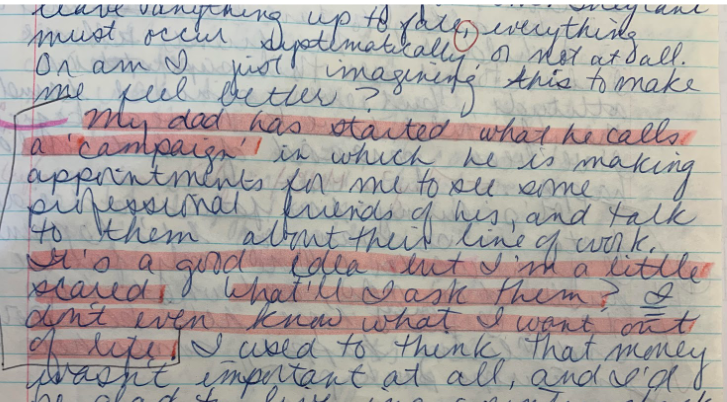 leave anything up to fate, everything
must occur systematically, or not at all.
Or am I just imagining this to make
me feel better?
My dad has started what he calls
a 'campaign' in which he is making
appointments for me to see some
professional friends of his, and talk
to them about their line of work.
It's a good idea but I'm a little
scared. What'll I ask them? I
don't even know what I want out
of life. I used to think that money
wasn't important at all, and I'd
be glad to live in a